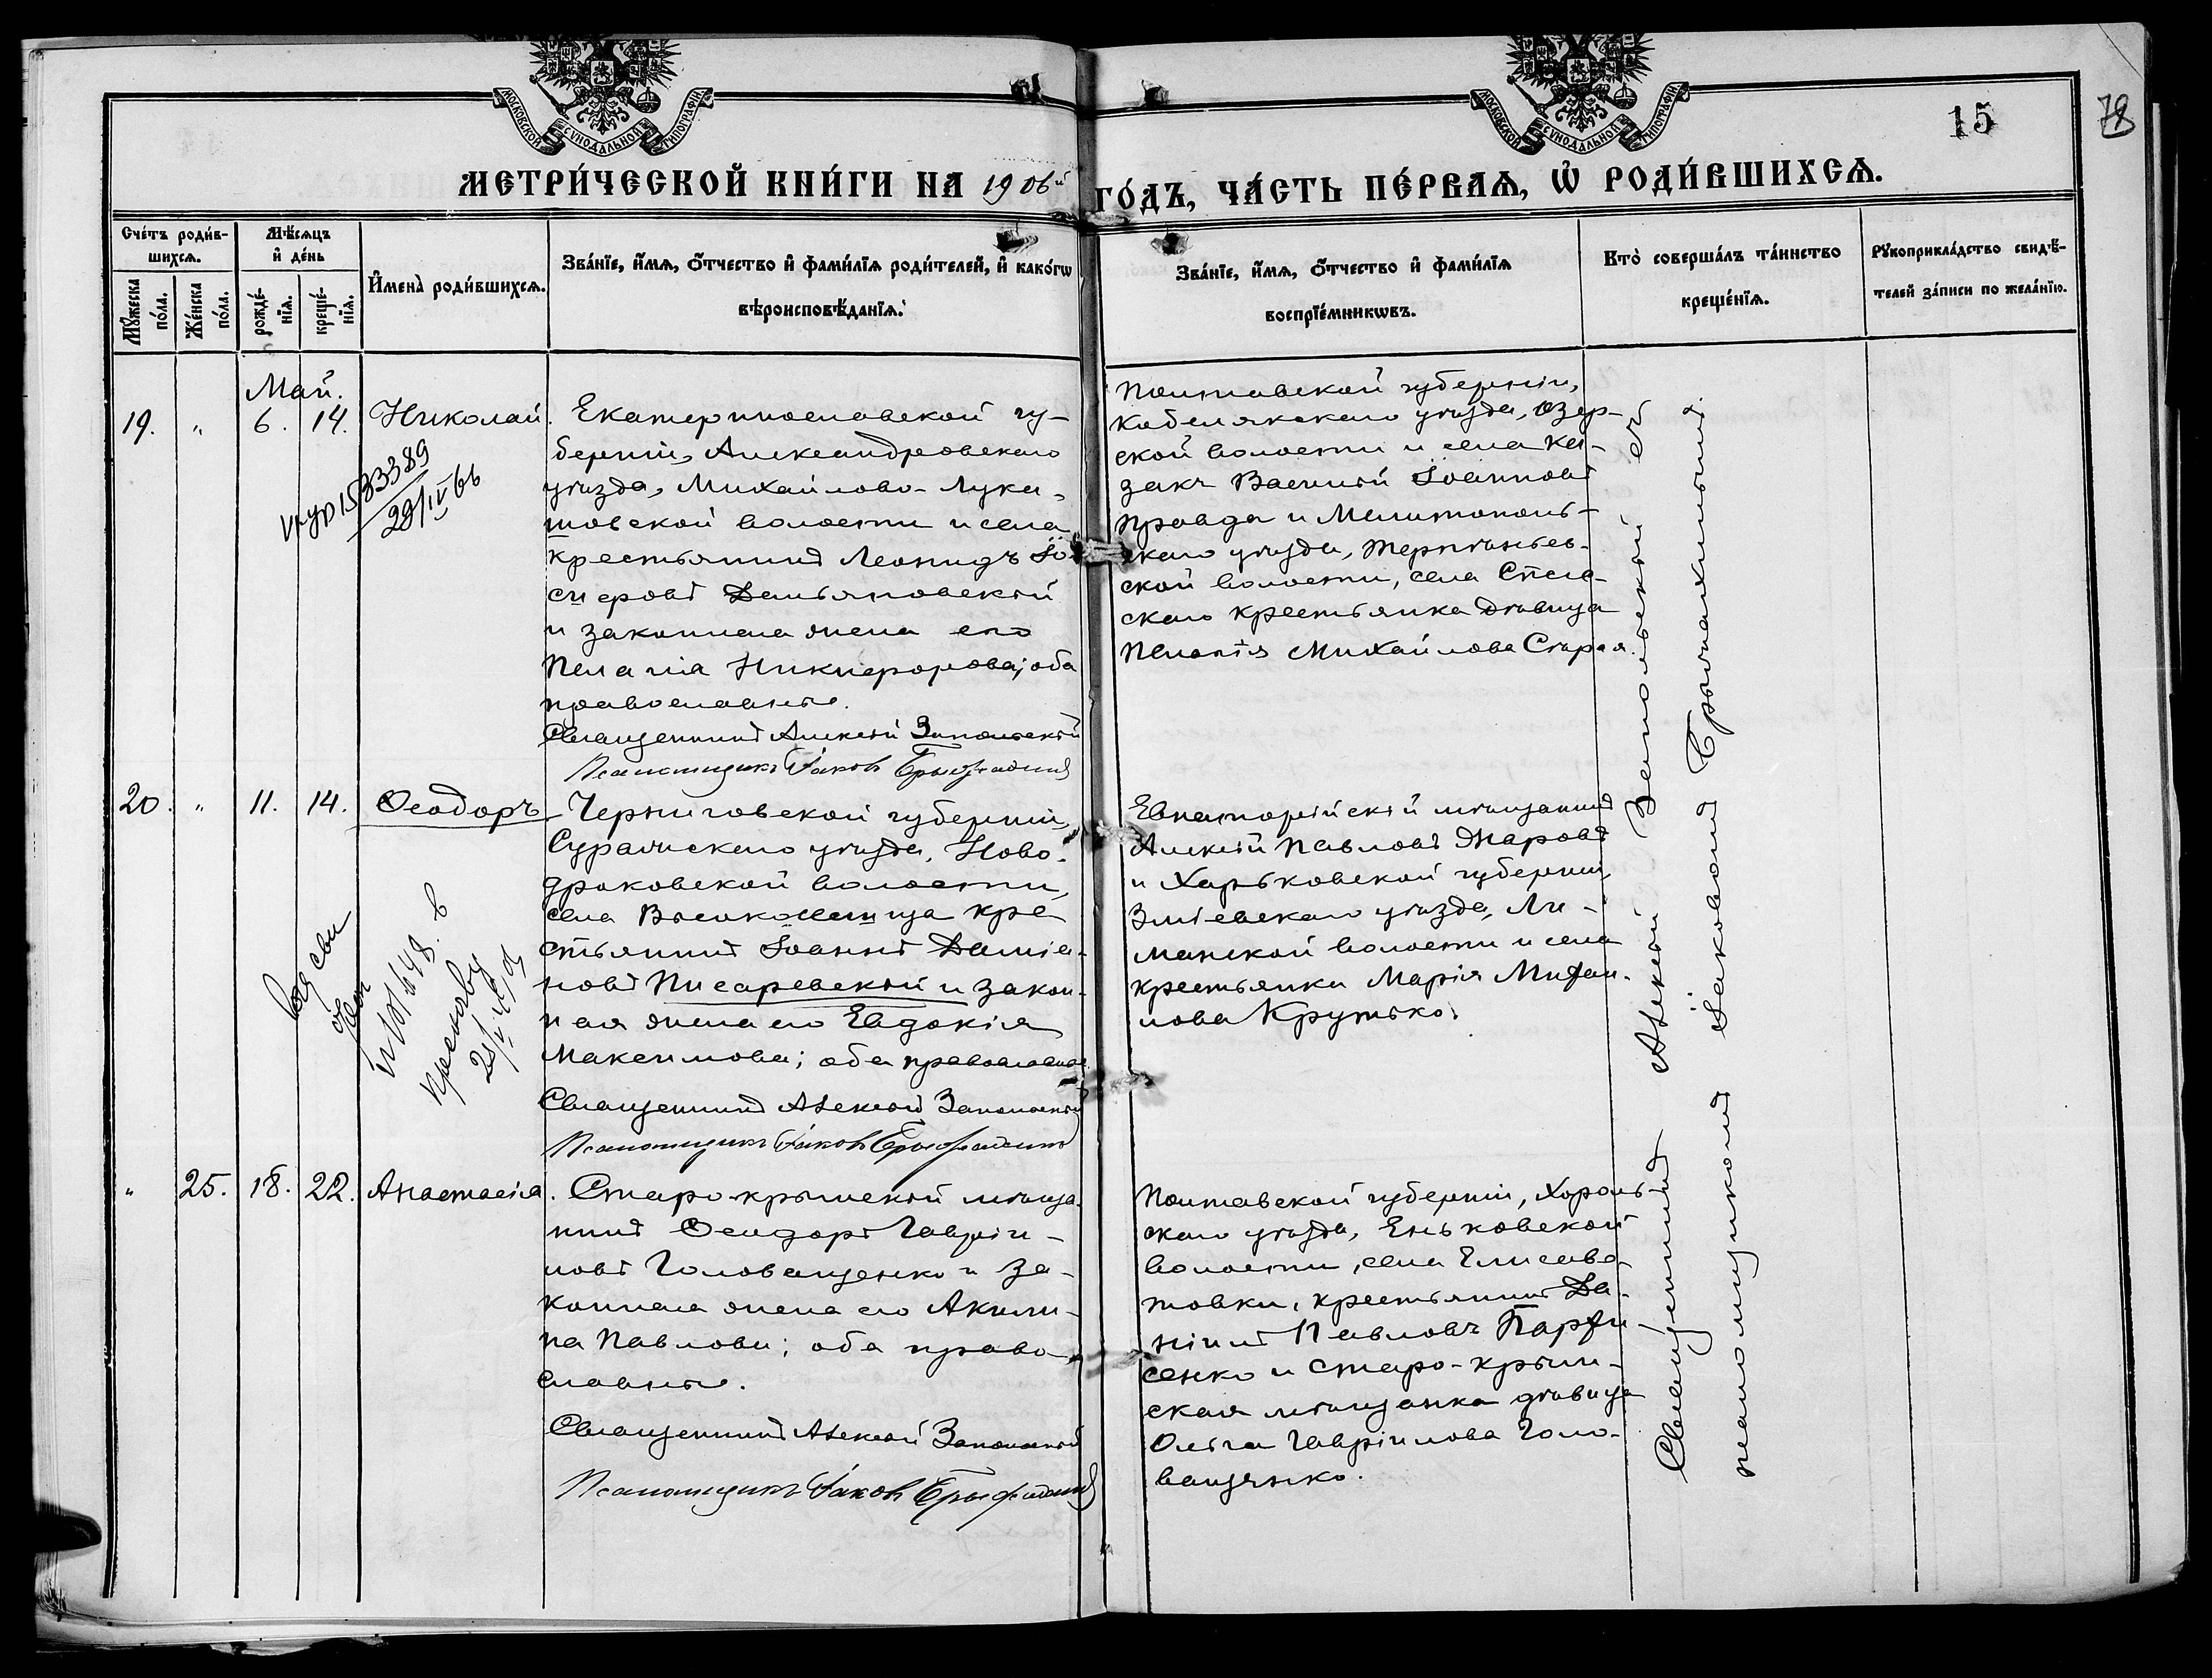 МОСКОВСКОЙ СУНОДАЛЬНОЙ ТИПОГРАФІИ
МОСКОВСКОЙ СУНОДАЛЬНОЙ ТИПОГРАФІИ
15
78
МЕТРИ́ЧЕСКОЙ КНИ́ГИ НА 1906й ГО́ДЪ, ЧА́СТЬ ПЕ́РВАѦ, Ѡ҆ РОДИ́ВШИХСѦ.
Сче́тъ роди́в-
шихсѧ.
Мꙋ́жеска по́ла.
Же́нска по́ла.
Мѣ́сѧцъ
и҆ де́нь
рожде́-
нїѧ.
креще́-
нїѧ.
И҆мена̀ роди́вшихсѧ.
Зва́нїе, и҆́мѧ, ѻ҆́тчество и҆ фами́лїѧ роди́телей, и҆ како́гѡ
вѣроисповѣ́данїѧ.
Зва́нїе, и҆́мѧ, ѻ҆́тчество и҆ фами́лїѧ
воспрїе́мникѡвъ.
Кто̀ соверша́лъ та́инство
креще́нїѧ.
Рꙋкоприкла́дство свидѣ́-
телей за́писи по жела́нїю.
Май.
19. " 6. 14. Николай.
1533389
29/IV 66
Екатеринославской гу-
берніи, Александровскаго
уѣзда, Михайлово-Лука-
шовской волости и села
крестьянинъ Леонидъ Іо-
сифовъ Демьяновскій
и законная жена его
Пелагія Никифорова; оба
православные.
Священникъ Алексій Запольскій
Псаломщикъ Іаковъ
Полтавской губерніи,
Кобелякскаго уѣзда, Озер-
ской волости и села ка-
закъ Василій Іоанновъ
Правда и Мелитополь-
скаго уѣзда, Терпѣньев-
ской волости, села Спас-
скаго крестьянка дѣвица
Пелагія Михайлова Старая.
20. " 11. 14. Ѳеодоръ
Черниговской губерніи,
Суражскаго уѣзда, Ново-
дроковской волости,
села Высокоселища кре-
стьянинъ Іоаннъ Даміа-
новъ Писаревскій и закон-
ная жена его Евдокія
Максимова; оба православные.
Священникъ Алексій Запольскій
Псаломщикъ Іаковъ
Евпаторійскій мѣщанинъ
Алексій Павловъ Жаровъ
и Харьковской губерніи,
Зміевскаго уѣзда, Ли-
манской волости и села
крестьянка Марія Михаи-
лова Крутько.
" 25. 18. 22. Анастасія.
Старо-крымскій мѣща-
нинъ Ѳеодоръ Гавріи-
ловъ Голованщенко и за-
конная жена его Акили-
на Павлова; оба право-
славные.
Священникъ Алексій Запольскій
Псаломщикъ Іаковъ
Полтавской губерніи, Хороль-
скаго уѣзда, Еньковской
волости, села Елисаве-
товки, крестьянинъ Да-
ніилъ Павловъ Парфи-
сенко и старо-крым-
ская мѣщанка дѣвица
Ольга Гавріилова Голо-
ващенко.
Священникъ Алексій Запольскій съ
псаломщикомъ Іаковомъ